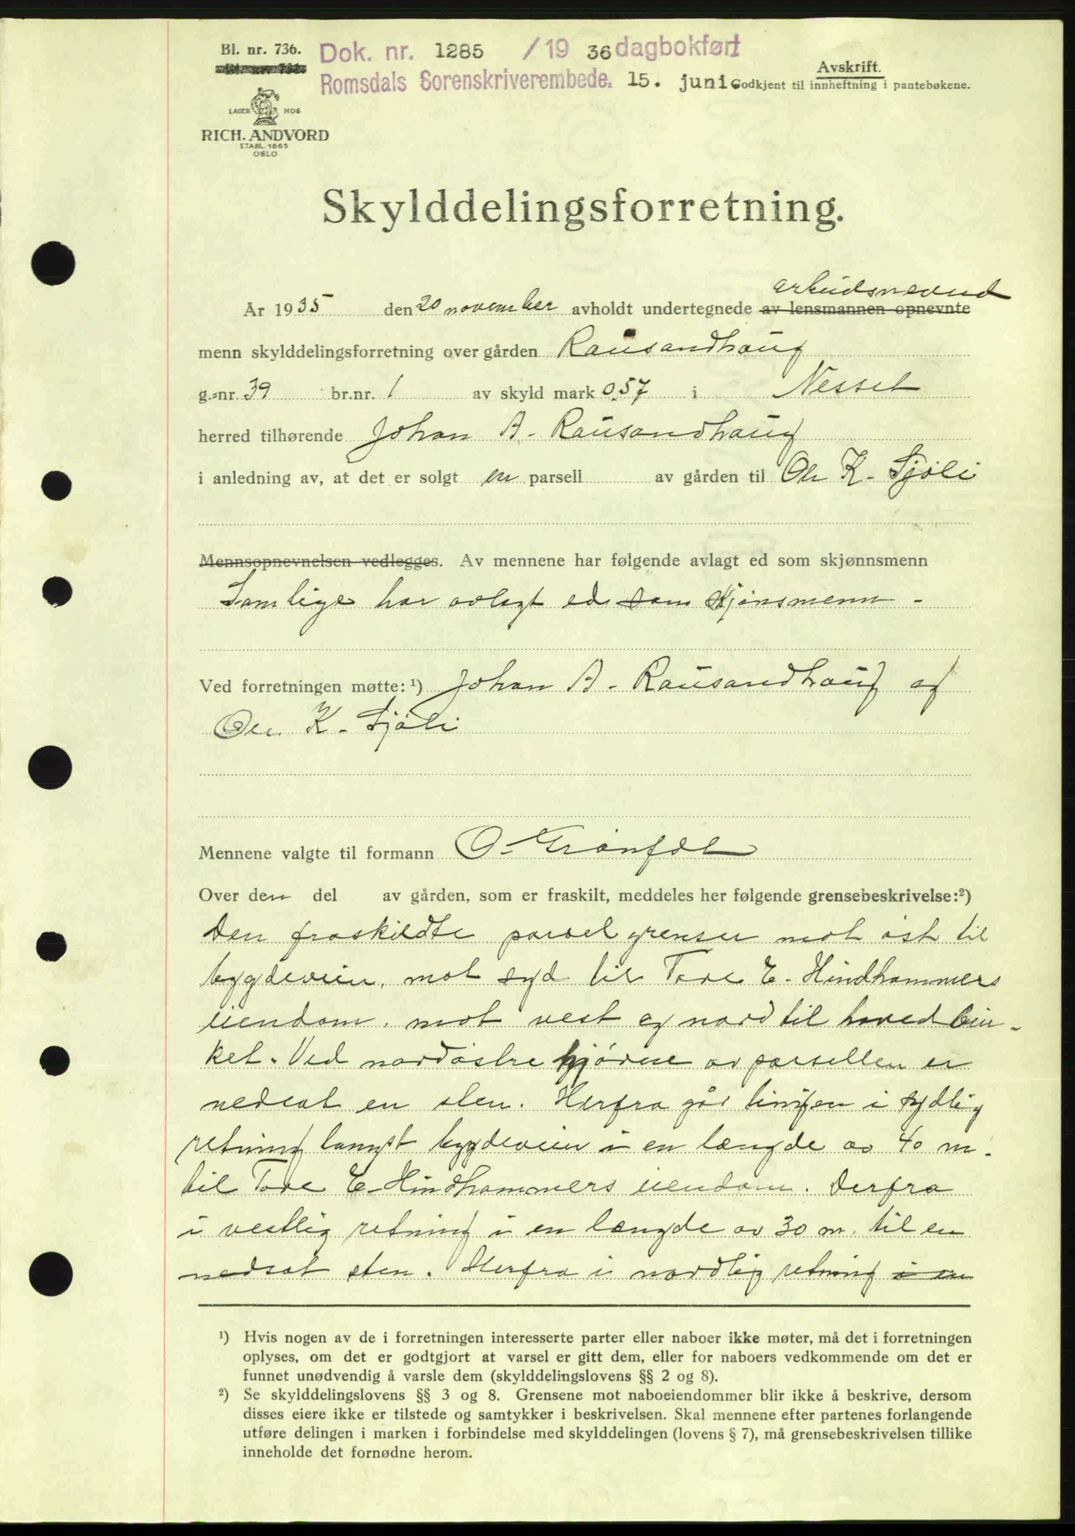 Bl. nr. 736.
Dok. nr. 1285 /1936 dagbokført
Romsdals Sorenskriverembede. 15. juni
Avskrift.
Godkjent til innheftning i pantebøkene.
LAGER HOS
RICH. ANDVORD
ETABL. 1865
OSLO
Skylddelingsforretning.
arbeidsnevnd
År 1935 den 20 november avholdt undertegnede av lensmannen opnevnte
menn skylddelingsforretning over gården Rausandhaug
g.-nr. 39 br.nr. 1 av skyld mark 0,57 i Nesset
herred tilhørende Johan A. Rausandhaug
i anledning av, at det er solgt en parsell av gården til Ole K. Sjøli
Mennsopnevnelsen vedlegges. Av mennene har følgende avlagt ed som skjønnsmenn
Samlige har avlagt ed som skjønsmenn -
Ved forretningen møtte: ¹) Johan A. Rausandhaug og
Ole K. Sjøli
Mennene valgte til formann O. Grønfdl
Over den del av gården, som er fraskilt, meddeles her følgende grensebeskrivelse:²)
Den fraskildte parsel grenser mot øst til
bygdeveien, mot syd til Tore E. Hindhammers
eiendom, mot vest og nord til hovedbru-
ket. Ved nordøstre hjørne av parsellen er
nedsat en sten. Herfra går linjen i sydlig
retning langst bygdeveien i en længde av 40 m.
til Tore E. Hindhammers eiendom. Derfra
i vestlig retning i en længde av 30 m. til en
nedsat sten. Herfra i nordlig retning i en
¹) Hvis nogen av de i forretningen interesserte parter eller naboer ikke møter, må det i forretningen
oplyses, om det er godtgjort at varsel er gitt dem, eller for naboers vedkommende om det er
funnet unødvendig å varsle dem (skylddelingslovens §§ 2 og 8).
²) Se skylddelingslovens §§ 3 og 8. Grensene mot naboeiendommer blir ikke å beskrive, dersom
disses eiere ikke er tilstede og samtykker i beskrivelsen. Skal mennene efter partenes forlangende
utføre delingen i marken i forbindelse med skylddelingen (lovens § 7), må grensebeskrivelsen tillike
inneholde det fornødne herom.